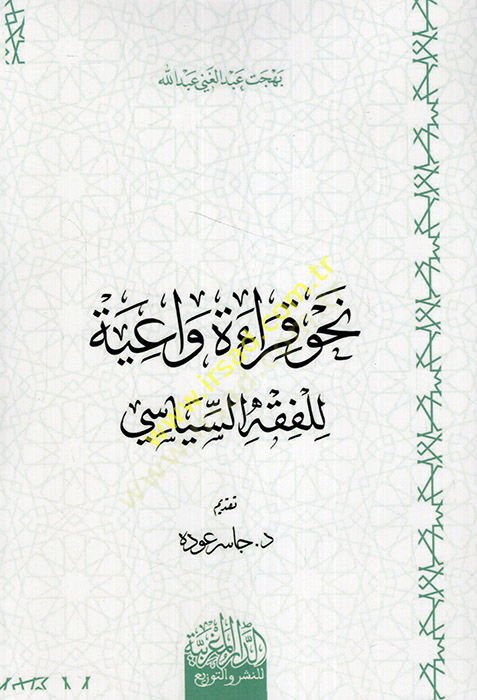 بهجت عبد الغني عبد الله
نَحْوَ قِرَاءَة وَاعِيَة
لِلفِقْهِ السِّيَاسِي
تقديم
د. جاسر عوده
الدار المغربية
للنشر والتوزيع